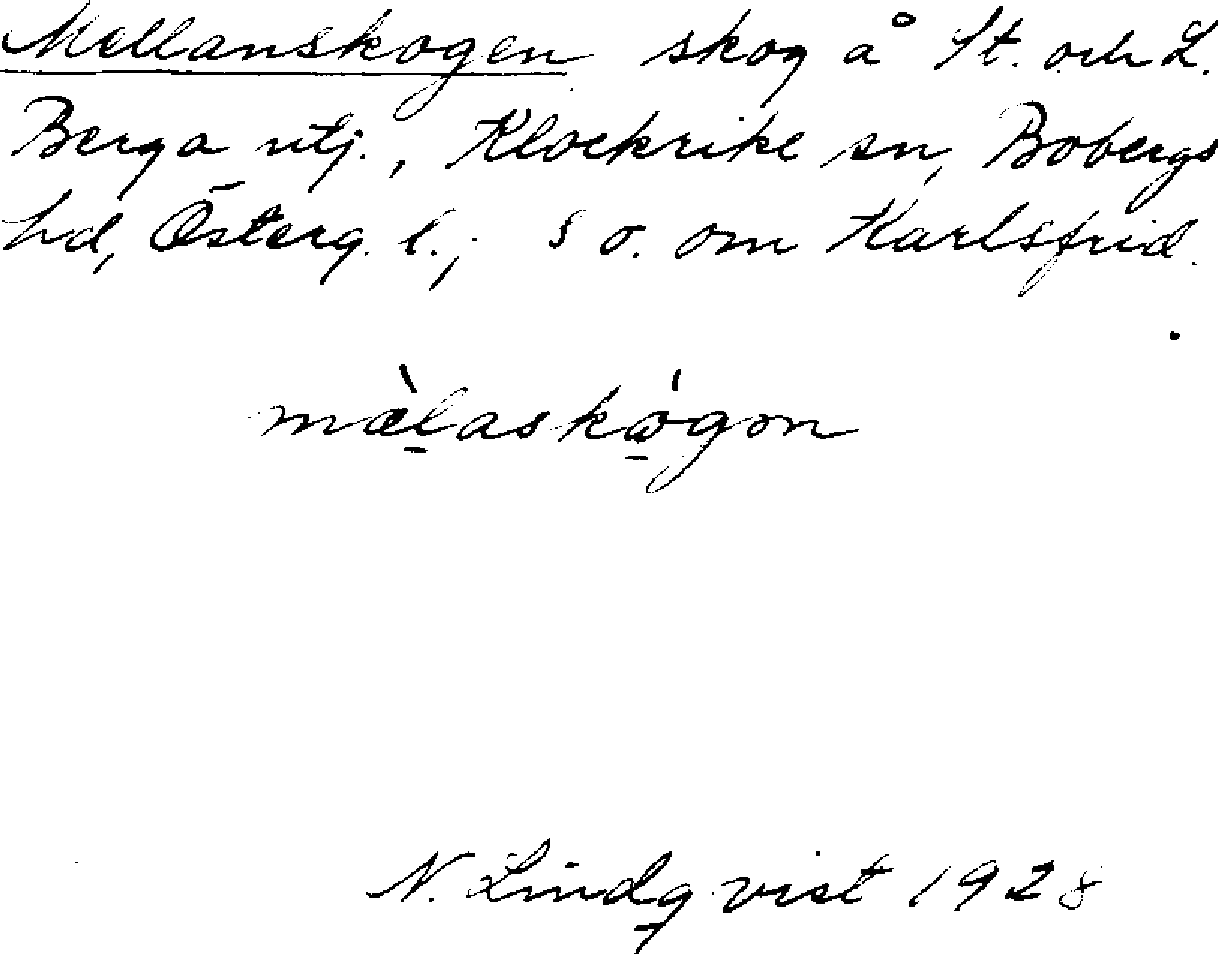 Mellanskogen skog å St. och L.
Berga utj., Klockrike sn, Bobergs
hd, Österg. l.; S o. om Karlsfrid.
mæ̀l̠askó̠gon
N. Lindqvist 1928